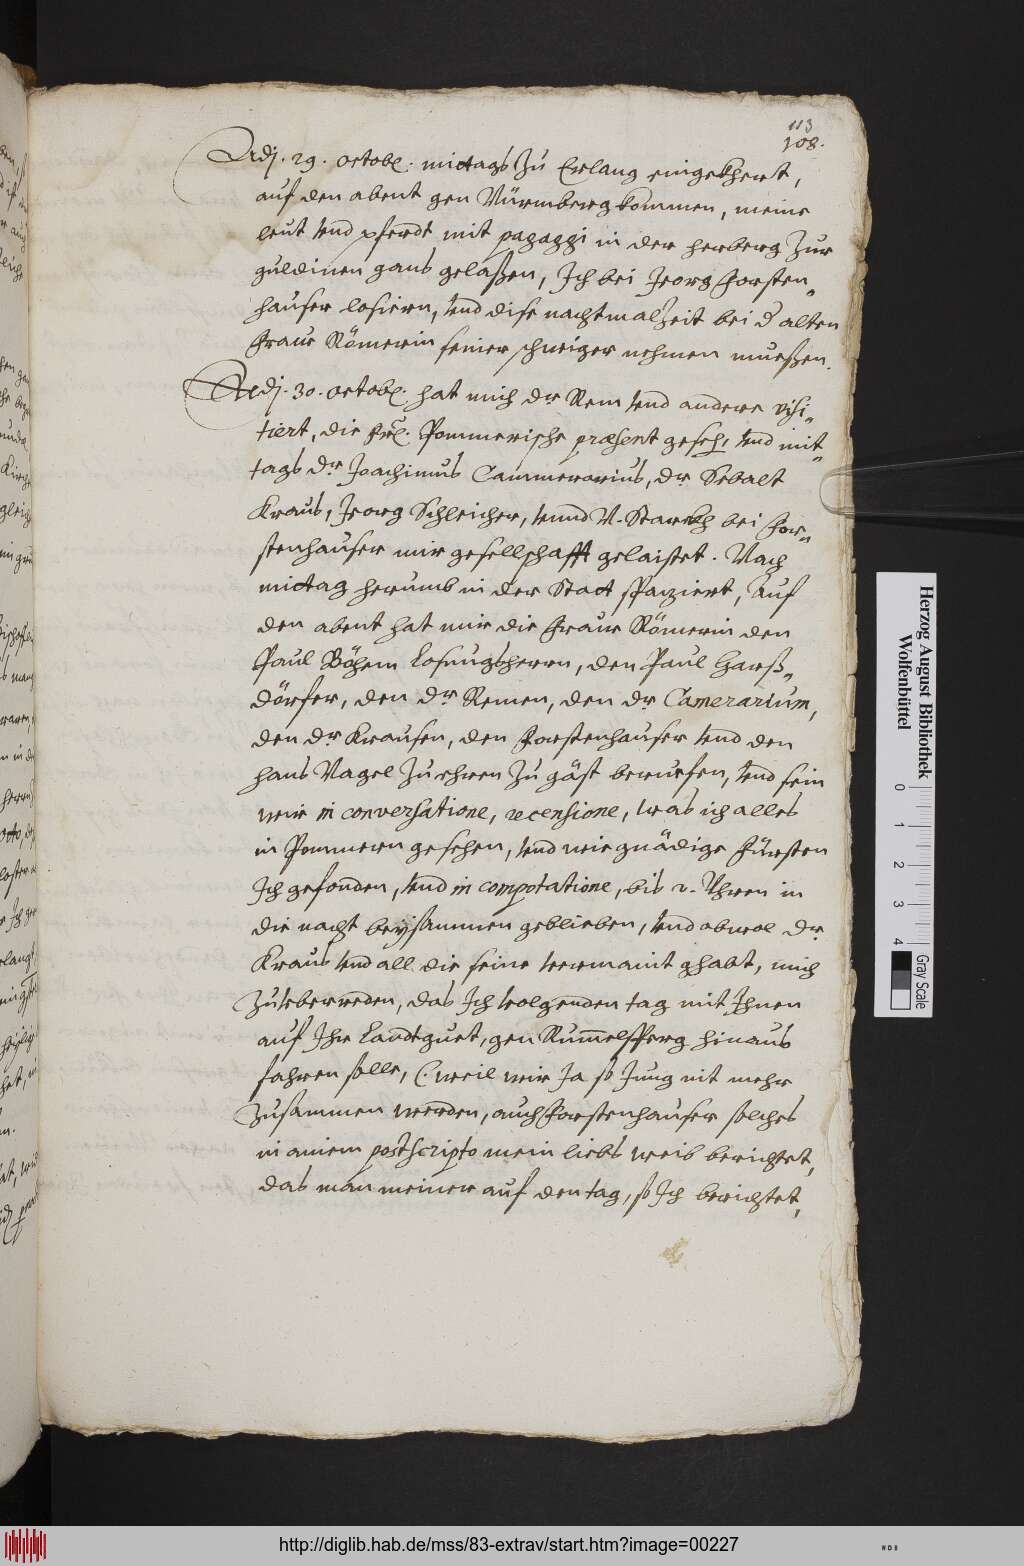 113
108.
Adj. 29. octob. mittags zu Erlang eingekhert,
auf den abent gen Nürmberg kommen, meine
leut vnd pferdt mit pagaggi in der herberg zur
guldinen gans gelaßen, Ich bei Jeorg Forsten-
hauser losiern, vnd dise nachtmalzeit bei d alten
Fraw Römerin seiner schwiger nehmen mueßen.
Adj. 30. octob. hat mich dr Rem vnd andere visi-
tiert, die frl. Pommerische præsent gesehen vnd mit-
tags dr Joachimus Cammerarius, dr Sebalt
Kraus, Jeorg Schleicher, vnnd N. Starckh bei For-
stenhauser mir gesellschafft gelaistet. Nach
mittag herumb in der Statt spaziert, Auf
den abent hat mir die Fraw Römerin den
Paul Böhem Losungsherrn, den Paul Harß-
dörfer, den dr Remen, den dr Camerarium,
den dr Krausen, den Forstenhauser vnd den
Hans Nagel zu ehren zu gäst beruefen, vnd sein
wir in conversatione, recensione, was ich alles
in Pommern gesehen, vnd wie gnädige Fürsten
Ich gefonden, vnd in compotatione, bis 2. Vhren in
die nacht beysammen geblieben, vnd obwol dr
Kraus vnd all die seine vermaint ghabt, mich
zuvberreden, das Ich volgenden tag mit Ihnen
auf Ihr Landtguet, gen Rummelsperg hinaus
fahren solle, (weil wir Ja so Jung nit mehr
zusammen werden, auch Forstenhauser solches
in ainem postscripto mein liebs weib berichtet,
das man meiner auf den tag, so Ich berichtet,
Herzog August Bibliothek
Wolfenbüttel
0 1 2 3 4
Gray Scale
http://diglib.hab.de/mss/83-extrav/start.htm?image=00227